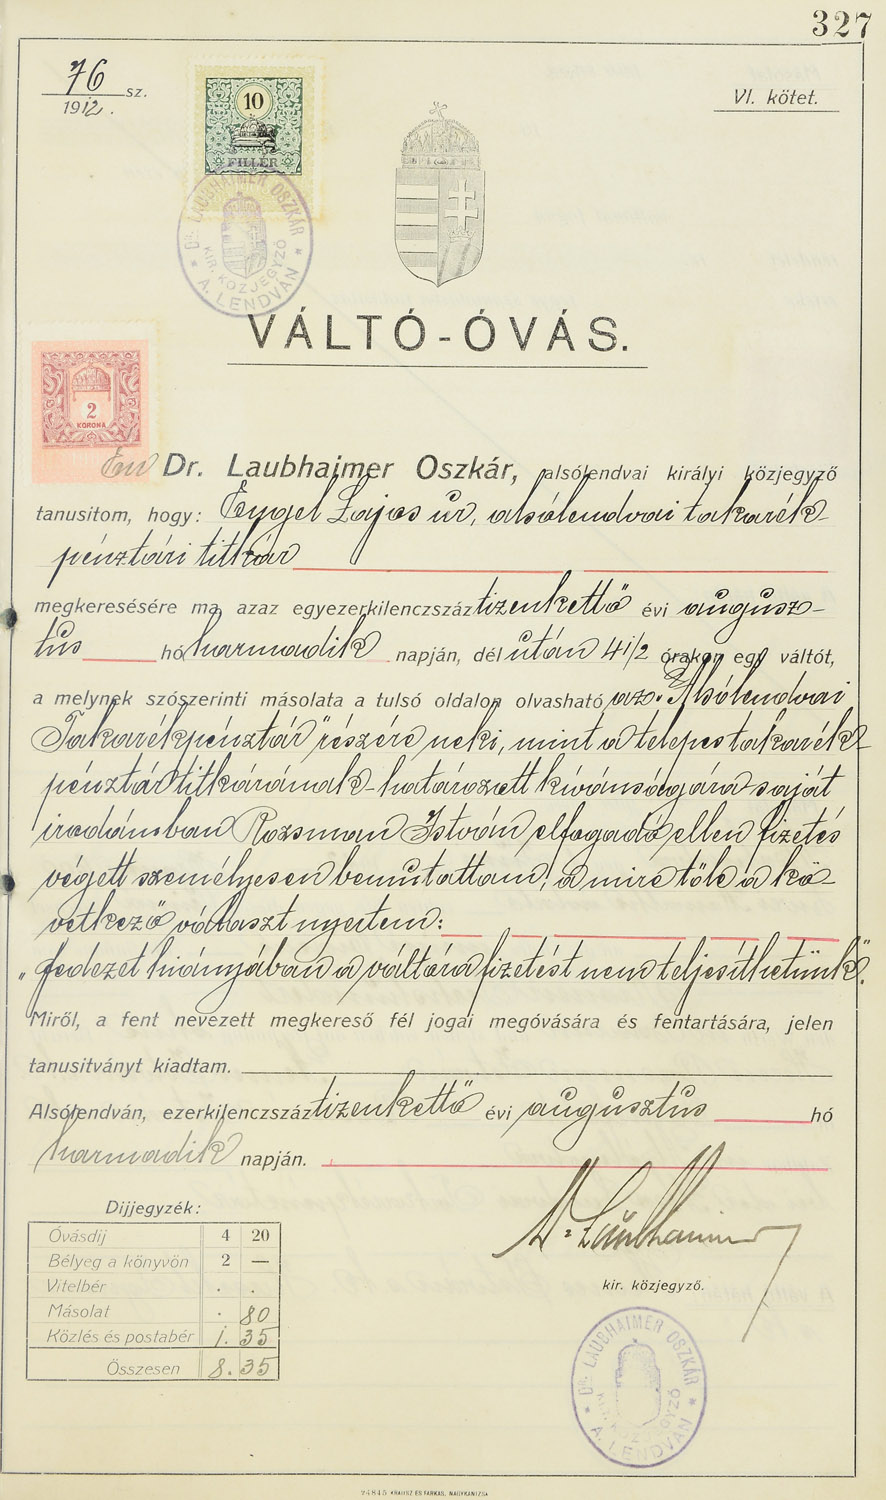 327
76 sz.
1912.
VI. kötet.
10
FILLÉR
DR. LAUBHAIMER OSZKÁR
KIR. KÖZJEGYZŐ
* A. LENDVÁN *
VÁLTÓ-ÓVÁS.
2
KORONA
Én Dr. Laubhaimer Oszkár, alsólendvai királyi közjegyző
tanusitom, hogy: Engel Lajos úr, alsólendvai takarék-
pénztári titkár
megkeresésére ma, azaz egyezerkilenczszáz tizenkettő évi augusz-
tus hó harmadik napján, dél után 4 1/2 órakor egy váltót,
a melynek szószerinti másolata a tulsó oldalon olvasható az "Alsólendvai
Takarékpénztár" részére neki, mint a telepes takarék-
pénztár titkárának - határozott kívánságára saját
irodámban Rozsman István elfogadó ellen fizetés
végett személyesen bemutattam, a mire tőle a kö-
vetkező választ nyertem:
„fedezet hiányában a váltóra fizetést nem teljesíthetünk".
Miről, a fent nevezett megkereső fél jogai megóvására és fentartására, jelen
tanusitványt kiadtam.
Alsólendván, ezerkilenczszáz tizenkettő évi augusztus hó
harmadik napján.
Dr. Laubhaimer
kir. közjegyző.
Dijjegyzék:
Óvásdij 4 20
Bélyeg a könyvön 2 —
Vitelbér . .
Másolat . 80
Közlés és postabér 1. 35
Összesen 8. 35
DR. LAUBHAIMER OSZKÁR
KIR. KÖZJEGYZŐ
* A. LENDVÁN *
24845 KRAUSZ ÉS FARKAS, NAGYKANIZSA